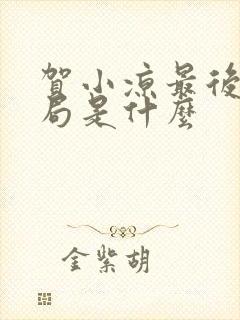 賀小涼最後
局是什麼
金紫胡